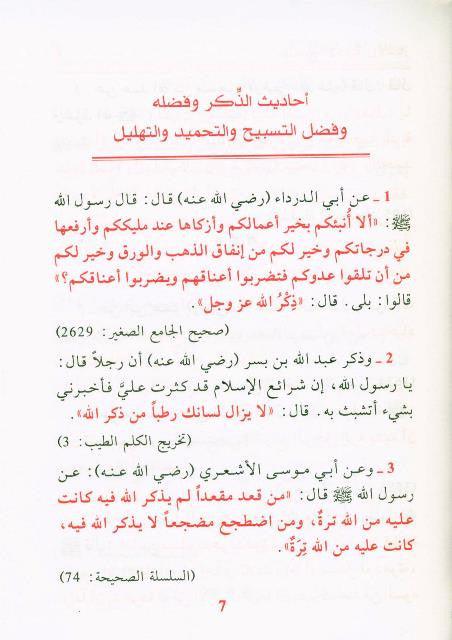 أحاديث الذِّكر وفضله
وفضل التسبيح والتحميد والتهليل
1 ـ عن أبي الدرداء (رضي الله عنه) قال: قال رسول الله
ﷺ: «ألا أُنبئكم بخير أعمالكم وأزكاها عند مليككم وأرفعها
في درجاتكم وخير لكم من إنفاق الذهب والورق وخير لكم
من أن تلقوا عدوكم فتضربوا أعناقهم ويضربوا أعناقكم؟»
قالوا: بلى. قال: «ذِكْرُ الله عز وجل».
(صحيح الجامع الصغير: 2629)
2 ـ وذكر عبد الله بن بسر (رضي الله عنه) أن رجلاً قال:
يا رسول الله، إن شرائع الإسلام قد كثرت عليَّ فأخبرني
بشيء أتشبث به. قال: «لا يزال لسانك رطباً من ذكر الله».
(تخريج الكلم الطيب: 3)
3 ـ وعن أبي موسى الأشعري (رضي الله عنه): عن
رسول الله ﷺ قال: «من قعد مقعداً لم يذكر الله فيه كانت
عليه من الله ترةٌ، ومن اضطجع مضجعاً لا يذكر الله فيه،
كانت عليه من الله تِرَةٌ».
(السلسلة الصحيحة: 74)
7